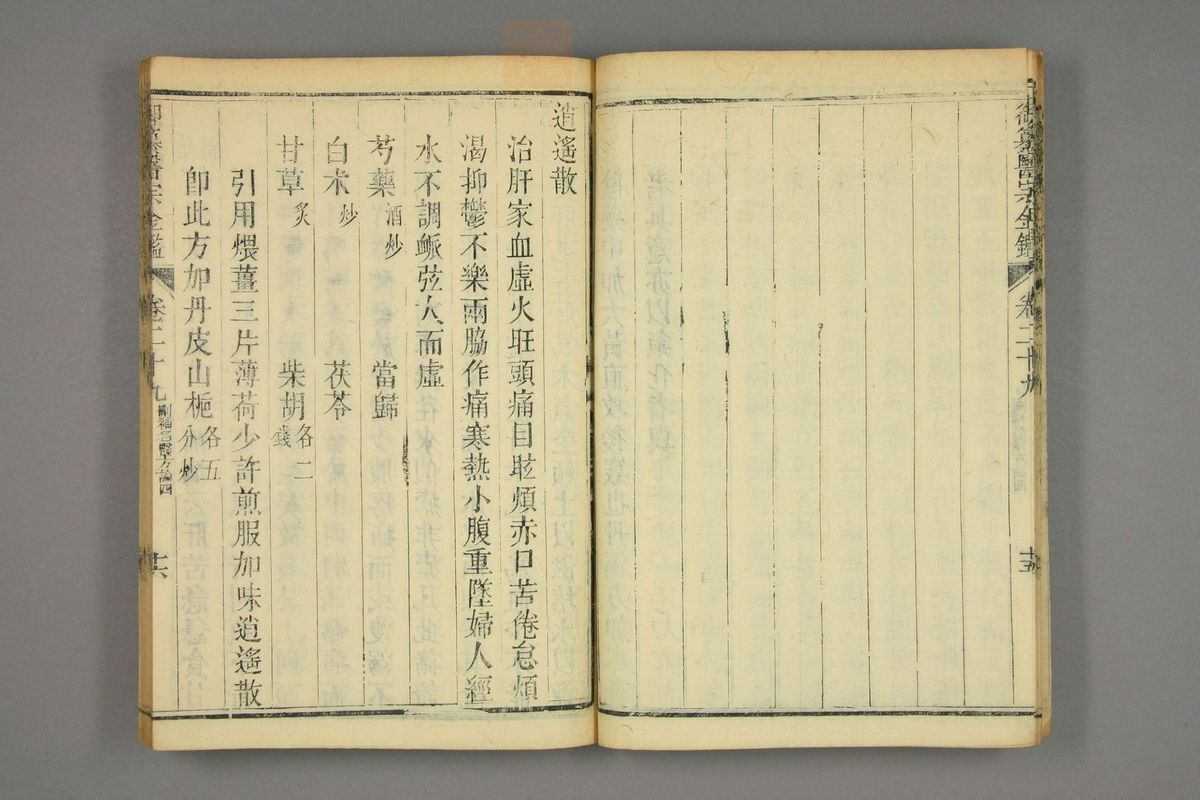 御纂醫宗金鑑 卷二十九
十五
逍遙散
治肝家血虛火旺頭痛目眩煩赤口苦倦怠煩
渴抑鬱不樂兩脇作痛寒熱小腹重墜婦人經
水不調脈弦大而虛
芍藥酒炒 當歸
白朮炒 茯苓
甘草炙 柴胡各二錢
引用煨薑三片薄荷少許煎服加味逍遙散
即此方加丹皮山梔各五分炒
御纂醫宗金鑑 卷二十九 刪補名醫方論四
十六